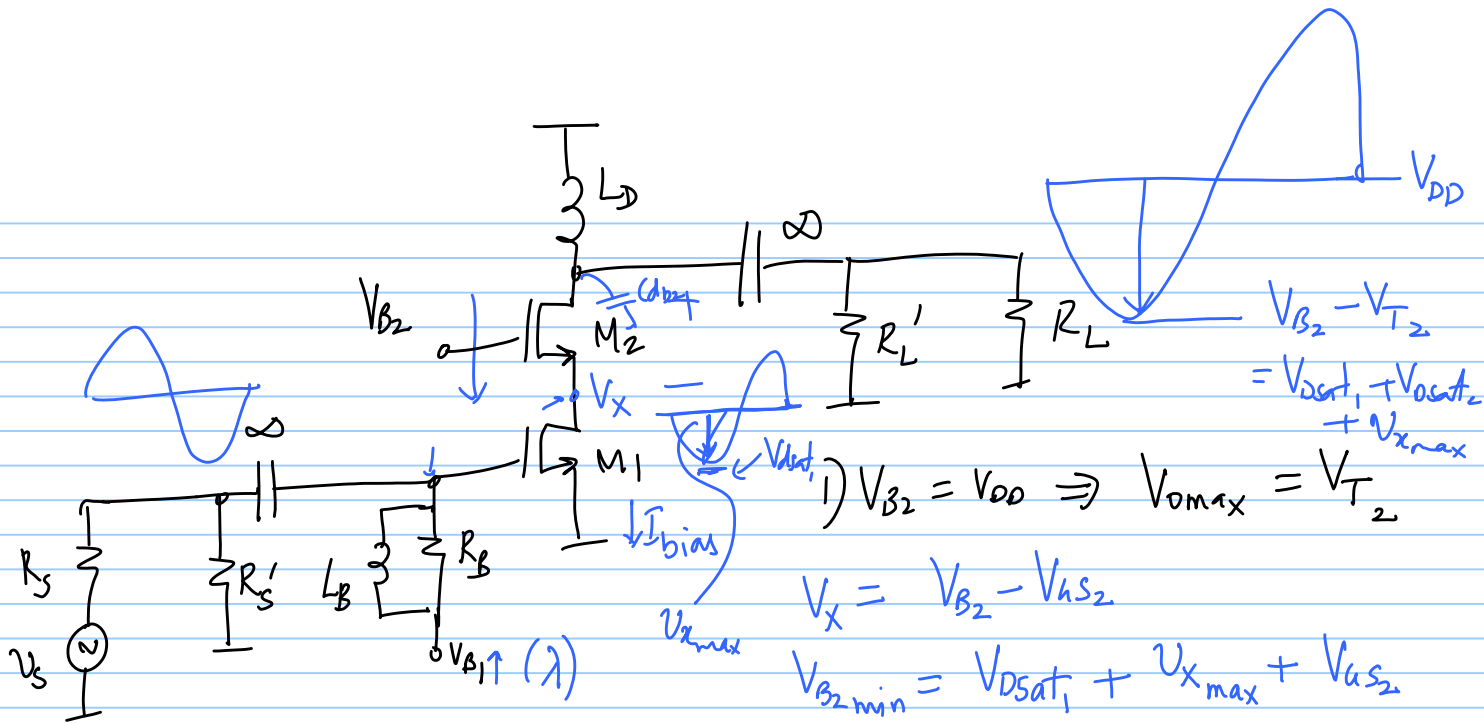 L_D
∞
V_DD
C_db2
V_B2
M2
R_L'
R_L
V_B2 - V_T2
= V_Dsat1 + V_Dsat2
+ v_xmax
V_X
∞
M1
V_dsat1
1) V_B2 = V_DD ⇒ V_omax = V_T2
I_bias
R_S
R_S'
L_B
R_B
V_X = V_B2 - V_GS2
v_xmax
v_S
V_B1 ↑ (λ)
V_B2min = V_DSat1 + v_Xmax + V_GS2